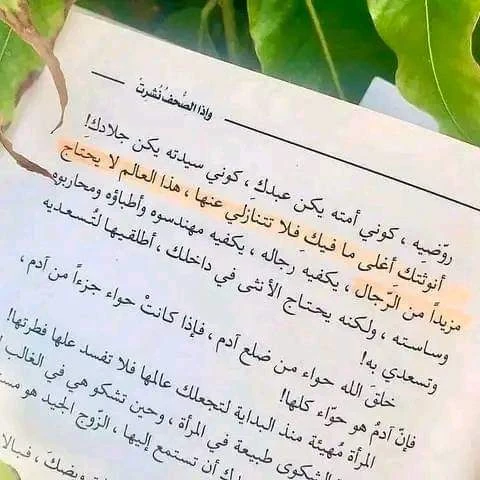 وإذا الصُّحفُ نُشرتْ
روّضيه ، كوني أمته يكن عبدكِ ، كوني سيدته يكن جلادكِ!
أنوثتكِ أغلى ما فيكِ فلا تتنازلي عنها ، هذا العالم لا يحتاج
مزيداً من الرّجال ، يكفيه رجاله ، يكفيه مهندسوه وأطباؤه ومحاربوه
وساسته ، ولكنه يحتاج الأنثى في داخلك ، أطلقيها لتُسعديه
وتسعدي به!
خلقَ الله حواء من ضلع آدم ، فإذا كانتْ حواء جزءاً من آدم ،
فإنّ آدمُ هو حوّاء كلها!
المرأة مُهيئة منذ البداية لتجعلك عالمها فلا تفسد علها فطرتها!
الشكوى طبيعة في المرأة ، وحين تشكو هي في الغالب
أن تستمع إليها ، الزّوج الجيد هو